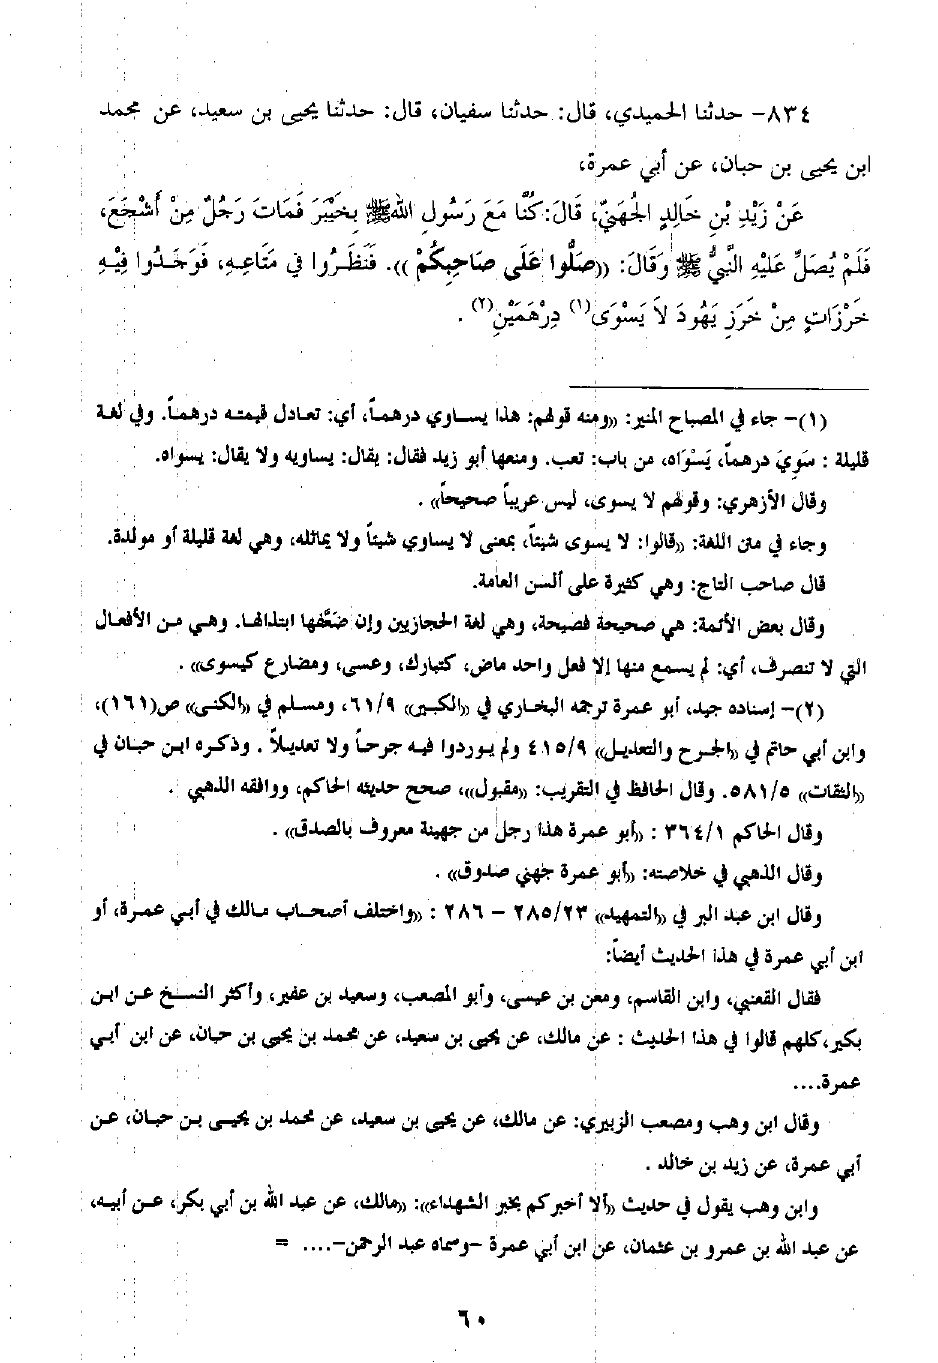 ٨٣٤- حدثنا الحميدي، قال: حدثنا سفيان، قال: حدثنا يحيى بن سعيد، عن محمد
ابن يحيى بن حبان، عن أبي عمرة،
عَنْ زَيْدِ بْنِ خَالِدٍ الجُهَنِيِّ، قَالَ: كُنَّا مَعَ رَسُولِ اللهِ ﷺ بِخَيْبَرَ فَمَاتَ رَجُلٌ مِنْ أَشْجَعَ،
فَلَمْ يُصَلِّ عَلَيْهِ النَّبِيُّ ﷺ وَقَالَ: ((صَلُّوا عَلَى صَاحِبِكُمْ)). فَنَظَرُوا فِي مَتَاعِهِ، فَوَجَدُوا فِيْهِ
خَرَزَاتٍ مِنْ خَرَزِ يَهُودَ لاَ يَسْوَى(١) دِرْهَمَيْنِ(٢) .
(١)- جاء في المصباح المنير: «ومنه قولهم: هذا يساوي درهماً، أي: تعادل قيمته درهماً. وفي لغة
قليلة : سَوِيَ درهماً، يَسْوَاه، من باب: تعب. ومنعها أبو زيد فقال: يقال: يساويه ولا يقال: يسواه.
وقال الأزهري: وقولهم لا يسوى، ليس عربياً صحيحاً» .
وجاء في متن اللغة: «قالوا: لا يسوى شيئاً، بمعنى لا يساوي شيئاً ولا يماثله، وهي لغة قليلة أو مولدة.
قال صاحب التاج: وهي كثيرة على ألسن العامة.
وقال بعض الأئمة: هي صحيحة فصيحة، وهي لغة الحجازيين وإن ضَعَّفها ابتذالها. وهي من الأفعال
التي لا تنصرف، أي: لم يسمع منها إلا فعل واحد ماض، كتبارك، وعسى، ومضارع كيسوى» .
(٢)- إسناده جيد، أبو عمرة ترجمه البخاري في «الكبير» ٦١/٩، ومسلم في «الكنى» ص(١٦١)،
وابن أبي حاتم في «الجرح والتعديل» ٤١٥/٩ ولم يوردوا فيه جرحاً ولا تعديلاً . وذكره ابن حبان في
«الثقات» ٥٨١/٥. وقال الحافظ في التقريب: «مقبول»، صحح حديثه الحاكم، ووافقه الذهبي .
وقال الحاكم ٣٦٤/١ : «أبو عمرة هذا رجل من جهينة معروف بالصدق» .
وقال الذهبي في خلاصته: «أبو عمرة جهني صدوق» .
وقال ابن عبد البر في «التمهيد» ٢٨٥/٢٣ - ٢٨٦ : «واختلف أصحاب مالك في أبي عمرة، أو
ابن أبي عمرة في هذا الحديث أيضاً:
فقال القعنبي، وابن القاسم، ومعن بن عيسى، وأبو المصعب، وسعيد بن عفير، وأكثر النسخ عن ابن
بكير،كلهم قالوا في هذا الحديث : عن مالك، عن يحيى بن سعيد، عن محمد بن يحيى بن حبان، عن ابن أبي
عمرة....
وقال ابن وهب ومصعب الزبيري: عن مالك، عن يحيى بن سعيد، عن محمد بن يحيى بن حبان، عن
أبي عمرة، عن زيد بن خالد .
وابن وهب يقول في حديث «ألا أخبركم بخير الشهداء»: «مالك، عن عبد الله بن أبي بكر، عن أبيه،
عن عبد الله بن عمرو بن عثمان، عن ابن أبي عمرة -وسماه عبد الرحمن-.... =
٦٠